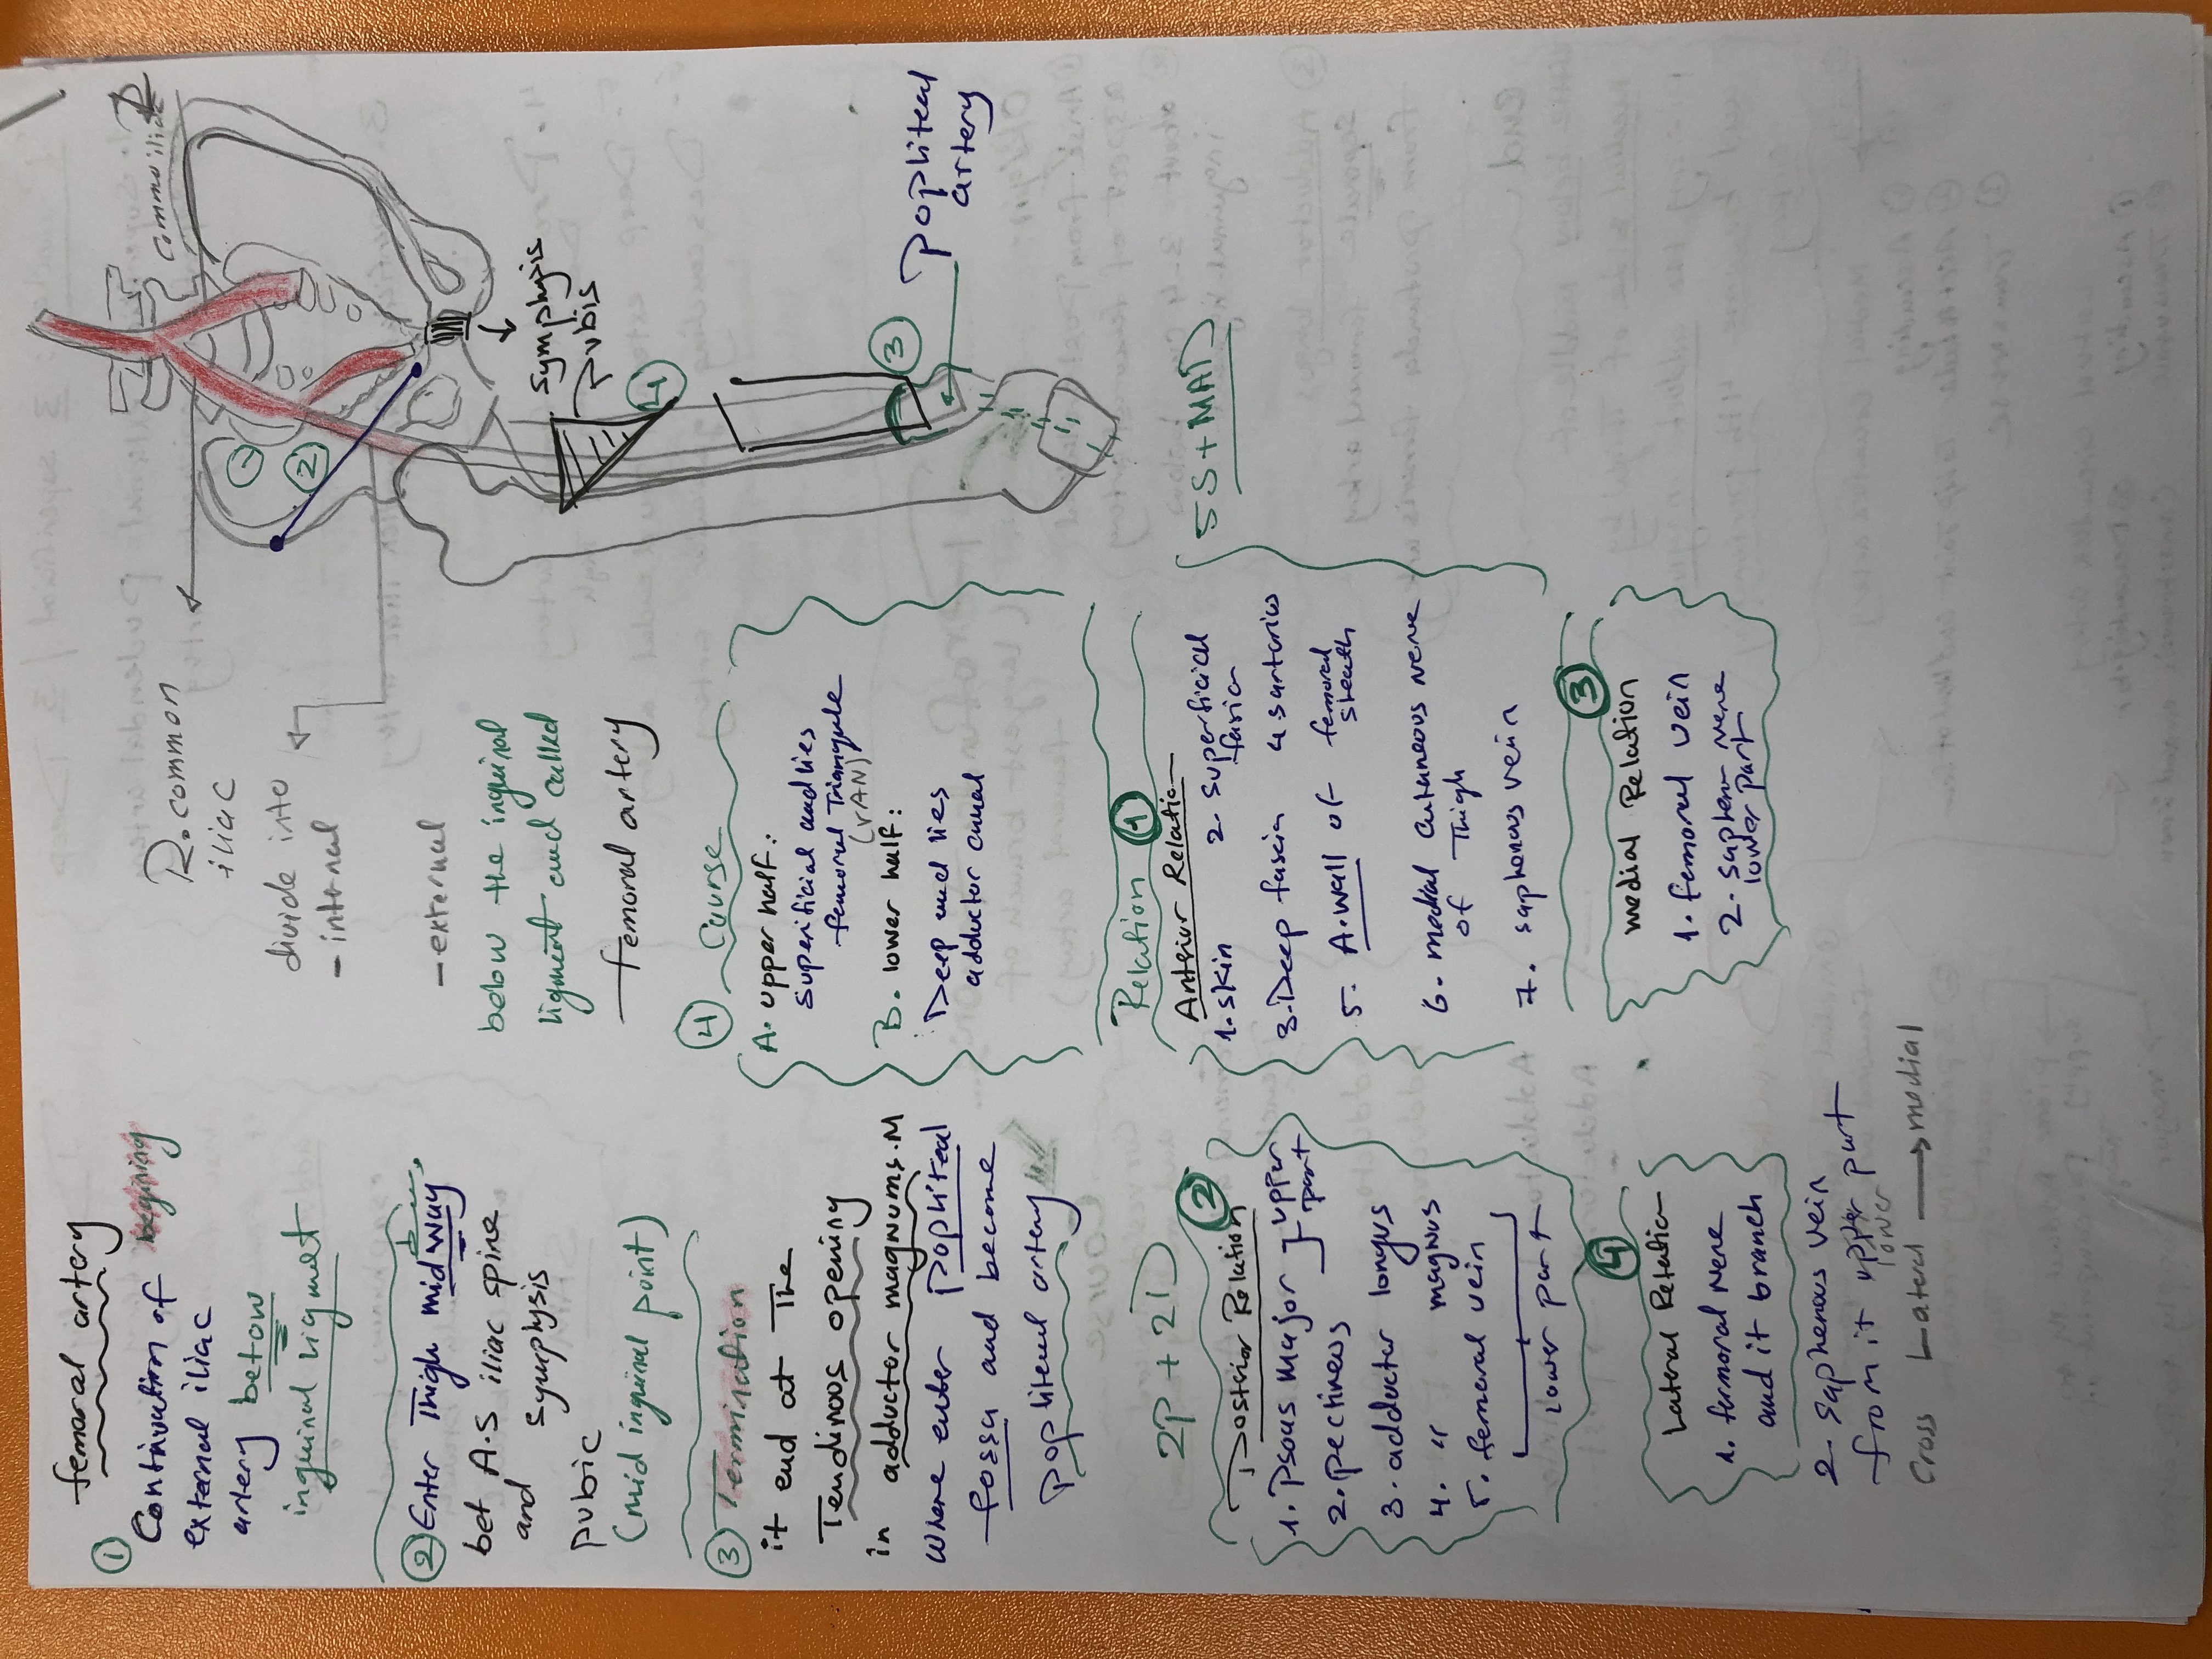 femoral artery
① begining
Continuation of
external iliac
artery below
inguinal ligamet
② Enter Thigh midway
bet A.S iliac spine
and Symphysis
pubic
(mid inguinal point)
③ Termination
it end at The
Tendinoos opening
in adductor magnums.M
Where enter Popliteal
fossa and become
popliteal artery
R.common
iliac
divide into
- internal
- external
below the inguinal
ligment and called
femoral artery
④ Curse
A. upper half:
superificial and lies
femoral Triangule
(VAN)
B. lower half:
Deep and lies
adductor canal
Common iliac
Symphysis
pubis
①
②
④
③
popliteal
artery
Relation
① Anterior Relation
1. skin 2. superficial
fascia
3. Deep fascia 4 sartorius
5. A.wall of femoral
sheath
6. medial cutaneous nerve
of Thigh
7. saphenous vein
5S+MAD
2P + 2D
② Posterior Relation
1. Psous major ] upper
2. pectineus part
3. adductor longus
4. " magnus
5. femeral vein
lower part
③
medial Relation
1. femoral vein
2. saphen nerve
lower part
④
Lateral Relation
1. farmoral nere
and it branch
2. saphenous vein
from it upper part
lower
Cross Lateral → medial